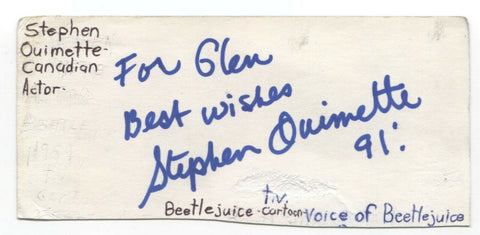 Stephen
Ouimette-
Canadian
Actor-
For Glen
Best wishes
Stephen Ouimette
91'.
t.v.
Beetlejuice-cartoon-Voice of Beetlejuice